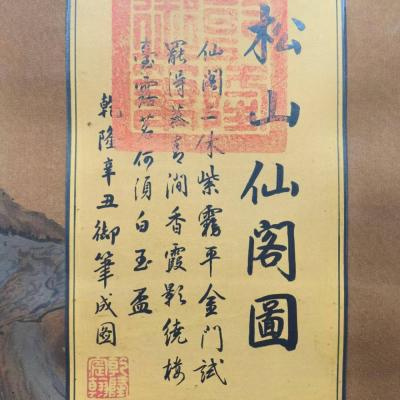 松山仙閣圖
仙閣二休紫霧平金門試
罷得蒸青澗香霞影繞樓
臺露茗何須白玉盃
乾隆辛丑御筆成圖
乾隆宸翰